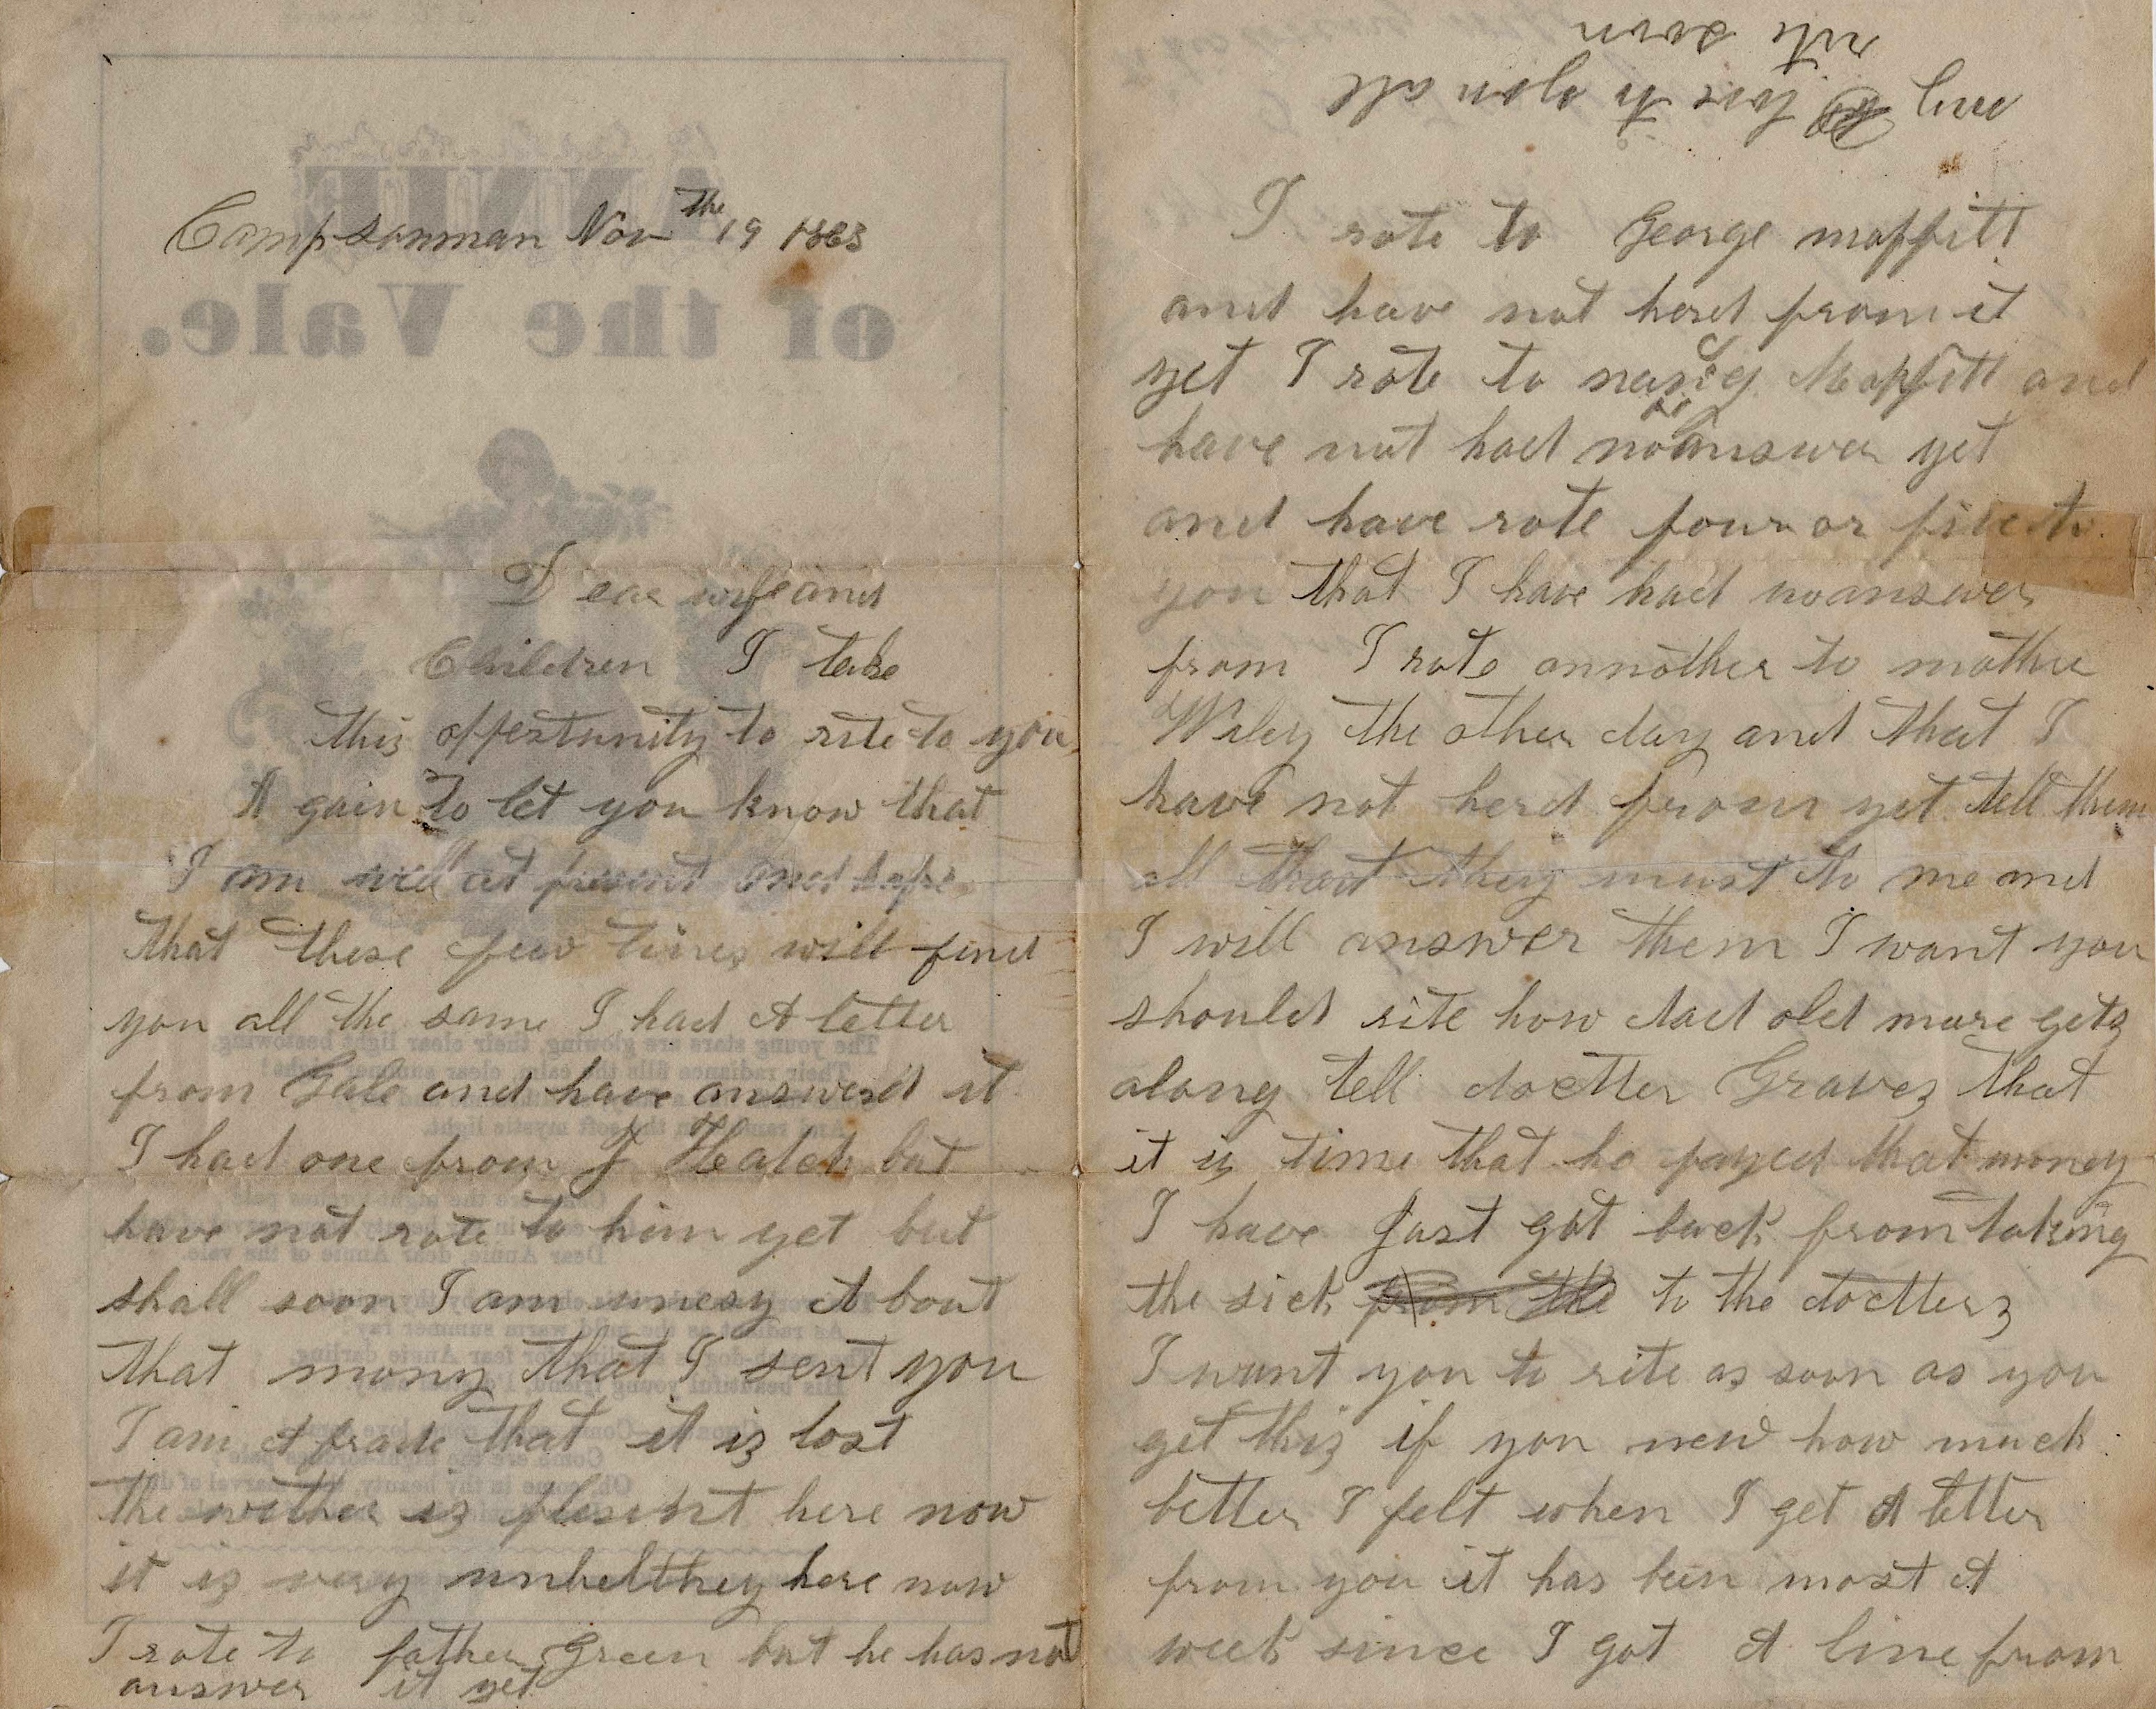 Camp sanman Nov the 19 1863
Dear wife and
Children I take
this oppertunity to rite to you
A gain to let you know that
I am well at present and hope
that these few lines will find
you all the same I had A letter
from Gale and have answerd it
I had one from J Heald but
have not rote to him yet but
shall soon I am unesy A bout
that mony that I sent you
I am A frade that it is lost
the wether is plesent here now
it is very unhelthey here now
I rote to father Green but he has not
answer it yet
rite soon
my love to you all
I rote to George moffitt
and have not herd from it
yet I rote to Moffitt and
have not had no answer yet
and have rote four or five to
you that I have had no answer
from I rote annother to mother
Wiley the other day and that I
have not herd from yet tell them
all that they must to me and
I will answer them I want you
should rite how dad old mare gets
along tell doctter Graves that
it is time that he payed that money
I have just got back from taking
the sick from the to the doctters
I want you to rite as soon as you
get this if you new how much
better I felt when I get A letter
from you it has been most A
week since I got A line from
ANNIE
of the Vale.
The young stars are glowing, their clear light bestowing,
Their radiance fills the calm, clear summer night!
the soft mystic light.
Dear Annie, dear Annie of the vale.
As radiant as the mild warm summer ray;
fear Annie darling,
His beautiful young friend, I